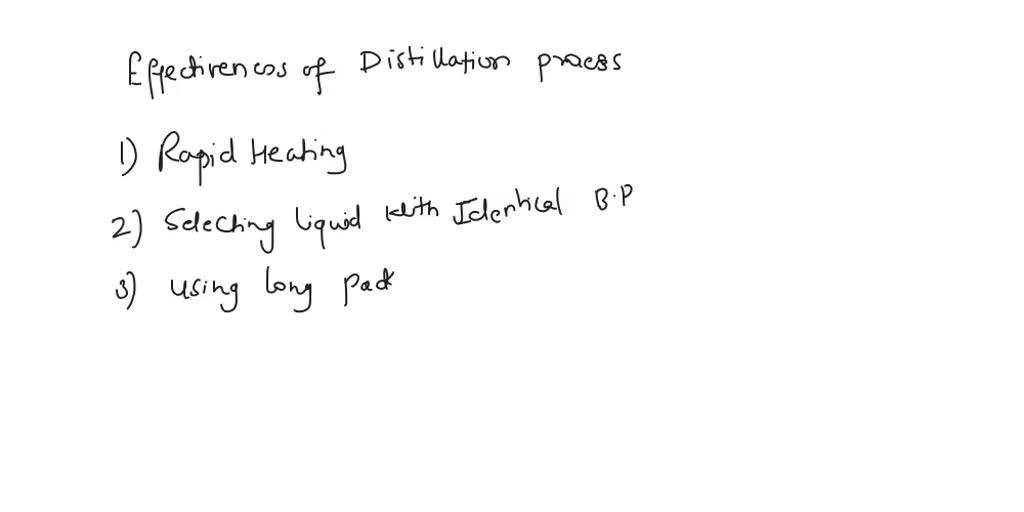 Effectiveness of Distillation process
1) Rapid Heating
2) Selecting liquid with Identical B.P
3) using long pack